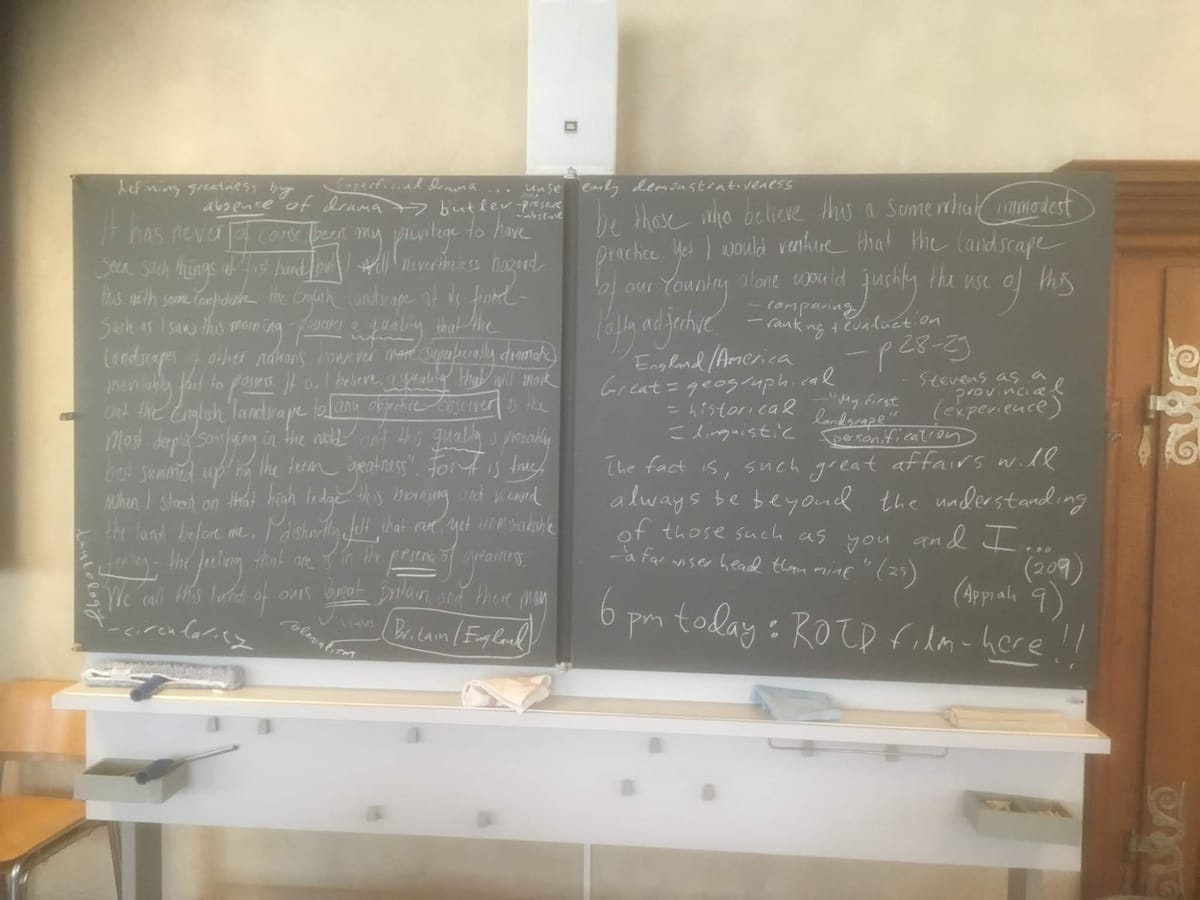 defining greatness by superficial drama ... unse
absence of drama → butler - presence
- absence
It has never of course been my privilege to have
seen such things at first hand, but I will nevertheless hazard
this with some confidence: the English landscape at its finest -
such as I saw this morning - possesses a quality that the
landscapes of other nations, however more superficially dramatic
inevitably fail to possess. It is, I believe, a quality that will mark
out the English landscape to any objective observer as the
most deeply satisfying in the world, and this quality is probably
best summed up by the term "greatness". For it is true,
when I stood on that high ledge this morning and viewed
the land before me, I distinctly felt that rare, yet unmistakable
feeling - the feeling that one is in the presence of greatness.
We call this land of ours Great Britain, and there may
tautology
- circularity
colonialism
Britain/England
emly demonstrativeness
be those who believe this a somewhat immodest
practice. Yet I would venture that the landscape
of our country alone would justify the use of this
lofty adjective.
- comparing
- ranking + evaluation
England/America
- p 28-29
Great = geographical
= historical
= linguistic
- "My first
landscape"
personification
- Stevens as a
provincial
(experience)
The fact is, such great affairs will
always be beyond the understanding
of those such as you and I...
(209)
- "a far wiser head than mine" (29)
(Appiah 9)
6 pm today: ROTD film - here!!